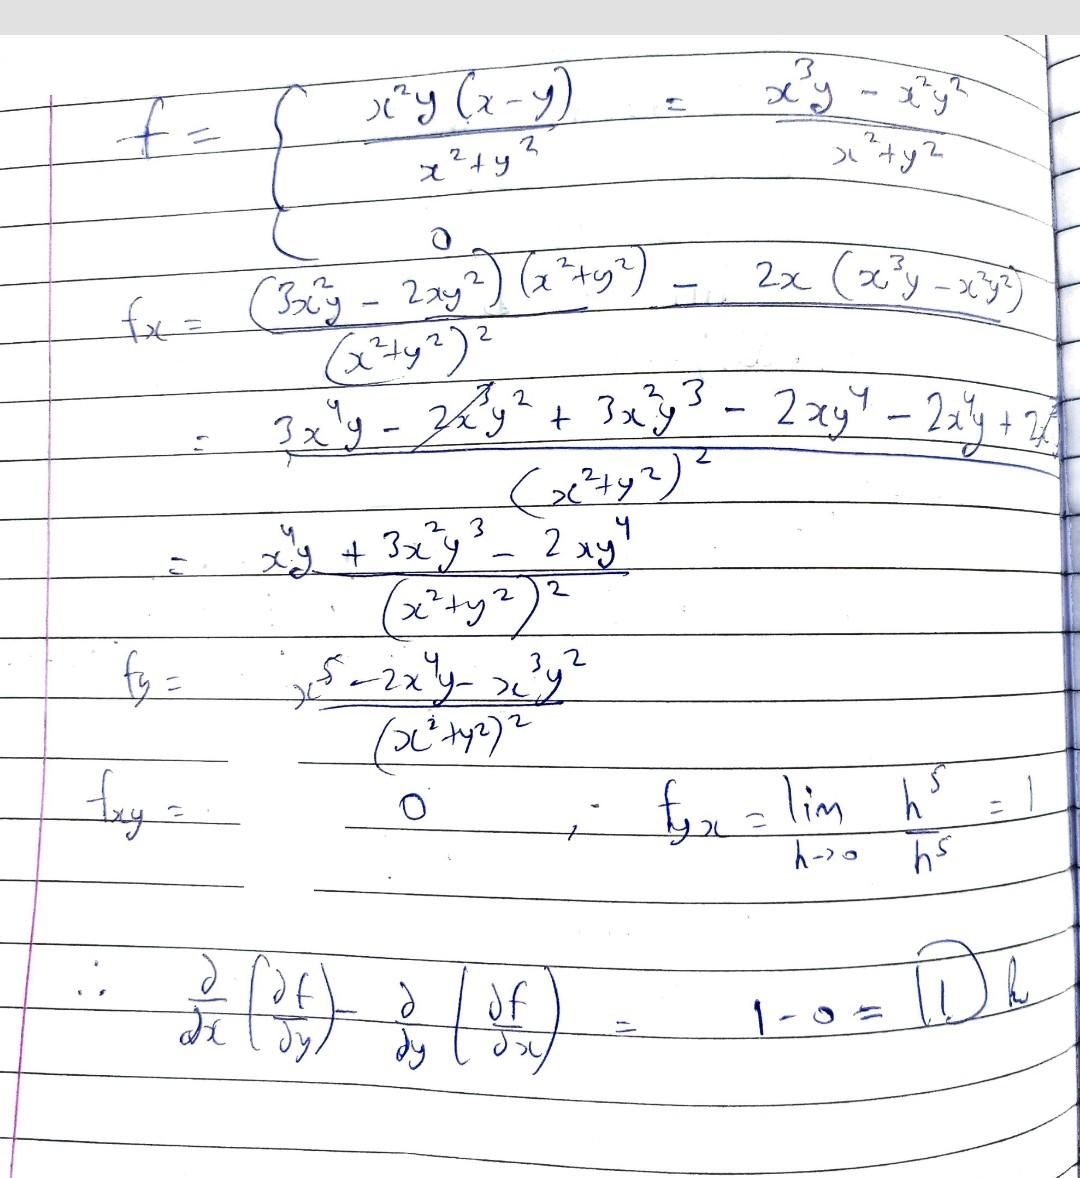 f = { x²y (x-y) / x²+y² = x³y - x²y² / x²+y²
0
fx = (3x²y - 2xy²) (x²+y²) - 2x (x³y - x²y²) / (x²+y²)²
= 3x⁴y - 2x³y² + 3x²y³ - 2xy⁴ - 2x⁴y + 2x / (x²+y²)²
= x⁴y + 3x²y³ - 2xy⁴ / (x²+y²)²
fy = x⁵ - 2x⁴y - x³y² / (x²+y²)²
fxy = 0 ; fyx = lim h→0 h⁵ / h⁵ = 1
∴ ∂/∂x (∂f/∂y) - ∂/∂y (∂f/∂x) = 1 - 0 = 1